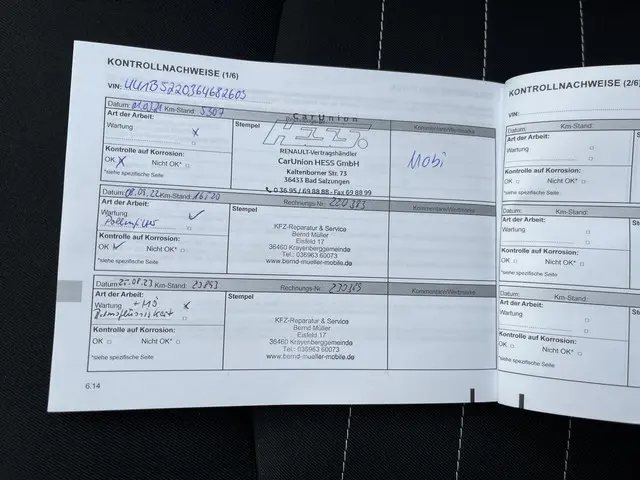 KONTROLLNACHWEISE (1/6)
VIN: UU1B5220364682603
Datum: Km-Stand: 5307
Art der Arbeit:
Wartung x
Kontrolle auf Korrosion:
OK X Nicht OK* □
*siehe spezifische Seite
Stempel
CarUnion
Hess
RENAULT-Vertragshändler
CarUnion HESS GmbH
Kaltenborner Str. 73
36433 Bad Salzungen
0 36 95 / 69 88 88 - Fax 69 88 99
Kommentare/Werkmarke
Mobi
Datum: 08.05.22 Km-Stand: 16120
Art der Arbeit:
Wartung ✓
Pollenfilter □
Kontrolle auf Korrosion:
OK ✓ Nicht OK* □
*siehe spezifische Seite
Stempel
Rechnungs-Nr.: 220383
KFZ-Reparatur & Service
Bernd Müller
Eisfeld 17
36460 Krayenberggemeinde
Tel.: 036963 60073
www.bernd-mueller-mobile.de
Datum: 25.08.23 Km-Stand: 23893
Art der Arbeit:
Wartung + MÖ x
Bremsflüssigkeit □
Kontrolle auf Korrosion:
OK □ Nicht OK* □
*siehe spezifische Seite
Stempel
Rechnungs-Nr.: 230365
KFZ-Reparatur & Service
Bernd Müller
Eisfeld 17
36460 Krayenberggemeinde
Tel.: 036963 60073
www.bernd-mueller-mobile.de
6.14
KONTROLLNACHWEISE (2/6)
VIN:
Datum: Km-Stand:
Art der Arbeit:
Wartung □
□
Kontrolle auf Korrosion:
OK □ Nicht OK* □
*siehe spezifische Seite
Datum: Km-Stand:
Art der Arbeit:
Wartung □
□
Kontrolle auf Korrosion:
OK □ Nicht OK* □
*siehe spezifische Seite
Datum: Km-Stand:
Art der Arbeit:
Wartung □
□
Kontrolle auf Korrosion:
OK □ Nicht OK* □
*siehe spezifische Seite